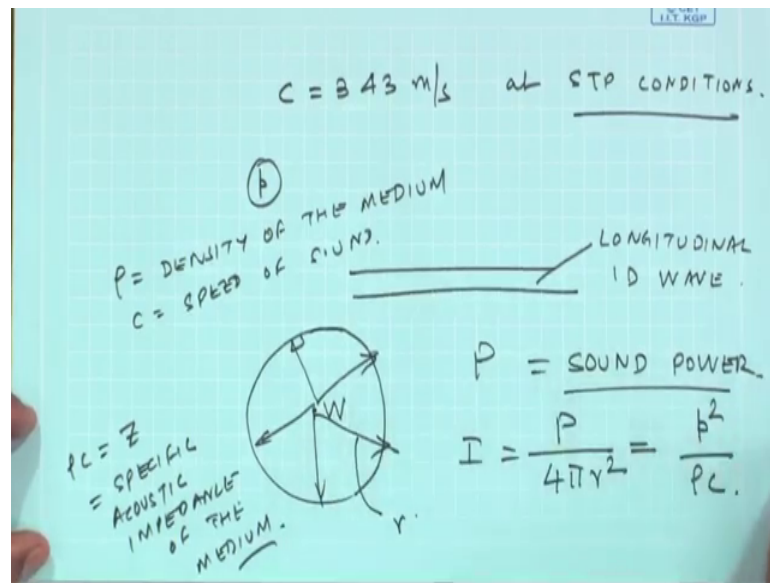 I.I.T. KGP
C = 343 m/s at STP CONDITIONS.
p
ρ = DENSITY OF THE MEDIUM
C = SPEED OF SOUND.
LONGITUDINAL
1D WAVE.
W
r
P = SOUND POWER.
I = P / 4πr² = p² / ρC.
ρC = Z
= SPECIFIC
ACOUSTIC
IMPEDANCE
OF THE
MEDIUM.